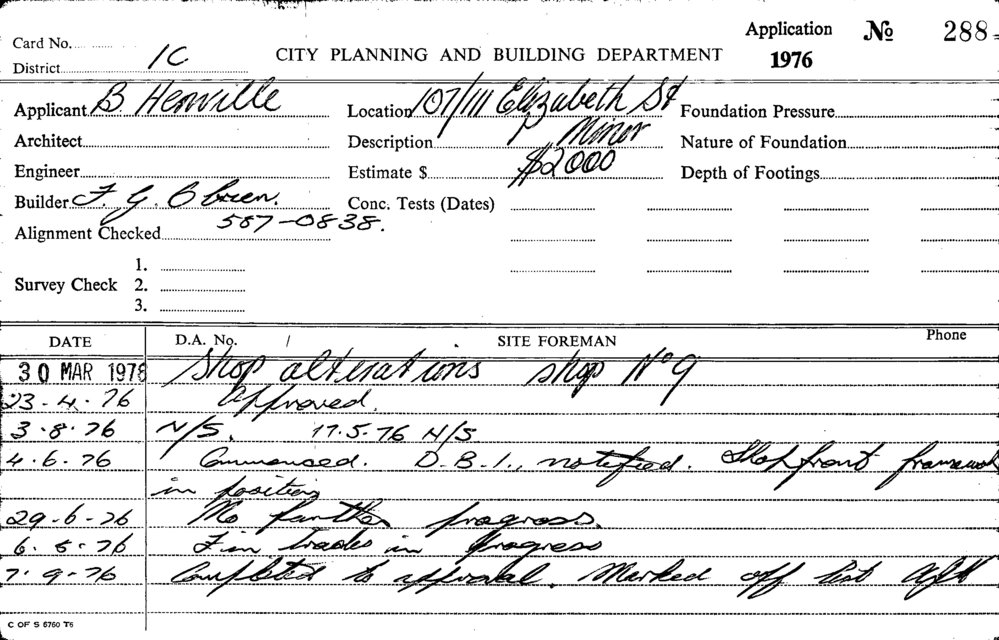 Application No 288
Card No.
1976
District 1C
CITY PLANNING AND BUILDING DEPARTMENT
Applicant B. Henville
Location 107/111 Elizabeth St
Foundation Pressure
Architect
Description Minor
Nature of Foundation
Engineer
Estimate $ $2000
Depth of Footings
Builder F. G. O'Brien.
Conc. Tests (Dates)
587-0838.
Alignment Checked
1.
Survey Check 2.
3.
DATE D.A. No. / SITE FOREMAN Phone
30 MAR 1976 Shop alterations shop No 9
23.4.76 Approved.
3.8.76 N/S. 17.5.76 N/S
4.6.76 Commensed. D.B.I., notified. Shopfront framework
in position
29-6-76 No further progress.
6.5.76 Fin trades in progress
7.9.76 Completed to approval. Marked off list
C OF S 5760 T6